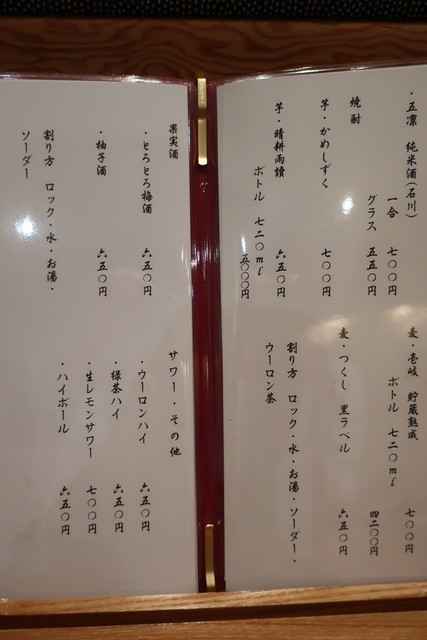 ・五凛 純米酒(石川)
一合 七〇〇円
グラス 五五〇円
焼酎
芋・かめしずく 七〇〇円
芋・晴耕雨讀 六五〇円
ボトル 七二〇ml 五〇〇〇円
麦・壱岐 貯蔵熟成 七〇〇円
ボトル 七二〇ml 四二〇〇円
麦・つくし 黒ラベル 六五〇円
割り方 ロック・水・お湯・ソーダー・
ウーロン茶
果実酒
・とろとろ梅酒 六五〇円
・柚子酒 六五〇円
割り方 ロック・水・お湯・
ソーダー
サワー・その他
・ウーロンハイ 六五〇円
・緑茶ハイ 六五〇円
・生レモンサワー 七〇〇円
・ハイボール 六五〇円